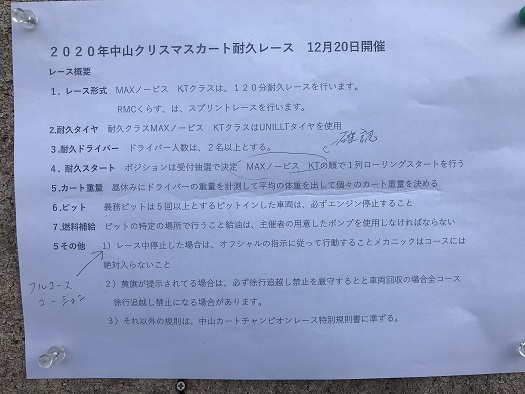 2020年中山クリスマスカート耐久レース 12月20日開催
レース概要
1．レース形式 MAXノービス KTクラスは、120分耐久レースを行います。
RMCくらす、は、スプリントレースを行います。
2.耐久タイヤ 耐久クラスMAXノービス KTクラスはUNILLTタイヤを使用
確認
3．耐久ドライバー ドライバー人数は、2名以上とする。
4．耐久スタート ポジションは受付抽選で決定 MAXノービス KTの順で1列ローリングスタートを行う
5.カート重量 昼休みにドライバーの重量を計測して平均の体重を出して個々のカート重量を決める
6.ピット 義務ピットは5回以上とするピットインした車両は、必ずエンジン停止すること
7.燃料補給 ピットの特定の場所で行うこと給油は、主催者の用意したポンプを使用しなければならない
5その他 1）レース中停止した場合は、オフシャルの指示に従って行動することメカニックはコースには
絶対入らないこと
フルコース
コーション
2）黄旗が提示されてる場合は、必ず徐行追越し禁止を厳守するとと車両回収の場合全コース
徐行追越し禁止になる場合があります。
3）それ以外の規則は、中山カートチャンピオンレース特別規則書に準ずる。